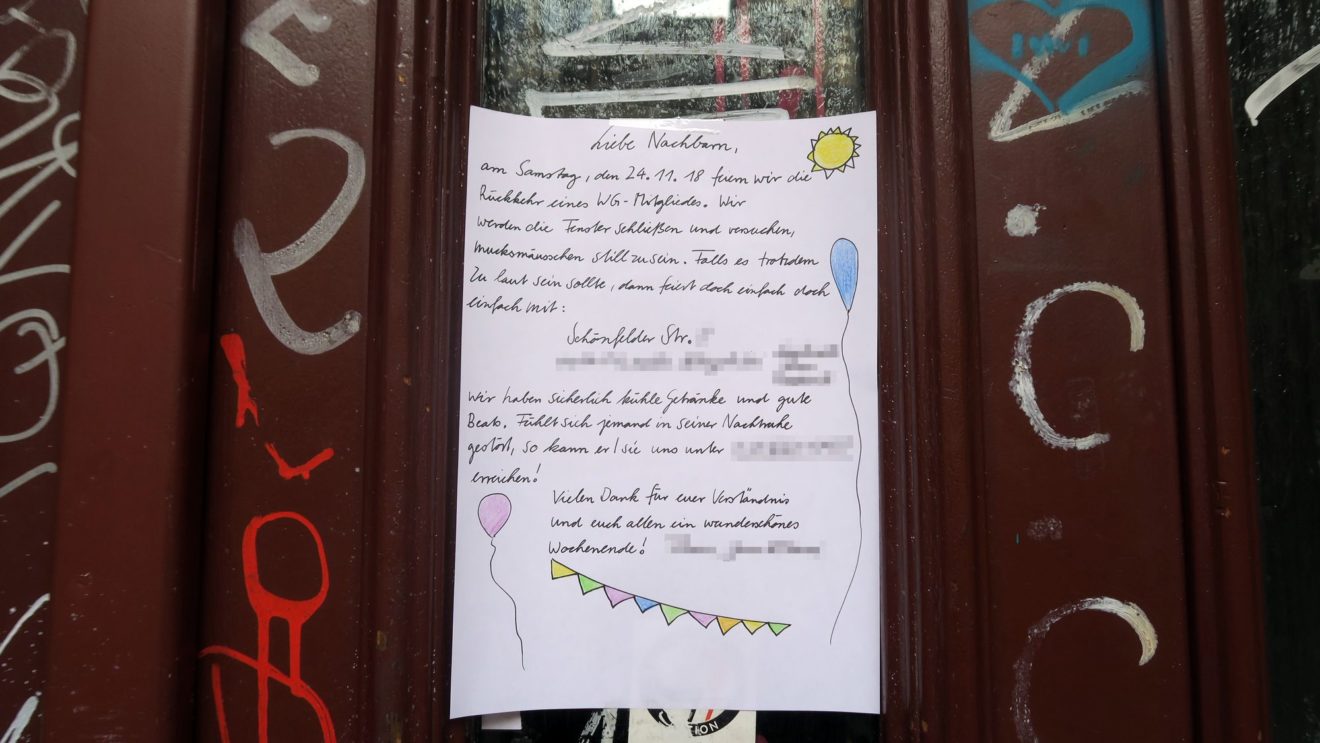 Liebe Nachbarn,
am Samstag, den 24.11.18 feiern wir die
Rückkehr eines WG-Mitgliedes. Wir
werden die Fenster schließen und versuchen,
mucksmäuschen still zu sein. Falls es trotzdem
zu laut sein sollte, dann feiert doch einfach doch
einfach mit:
Schönfelder Str.
Wir haben sicherlich kühle Getränke und gute
Beats. Fühlt sich jemand in seiner Nachtruhe
gestört, so kann er/sie uns unter
erreichen!
Vielen Dank für euer Verständnis
und euch allen ein wunderschönes
Wochenende!